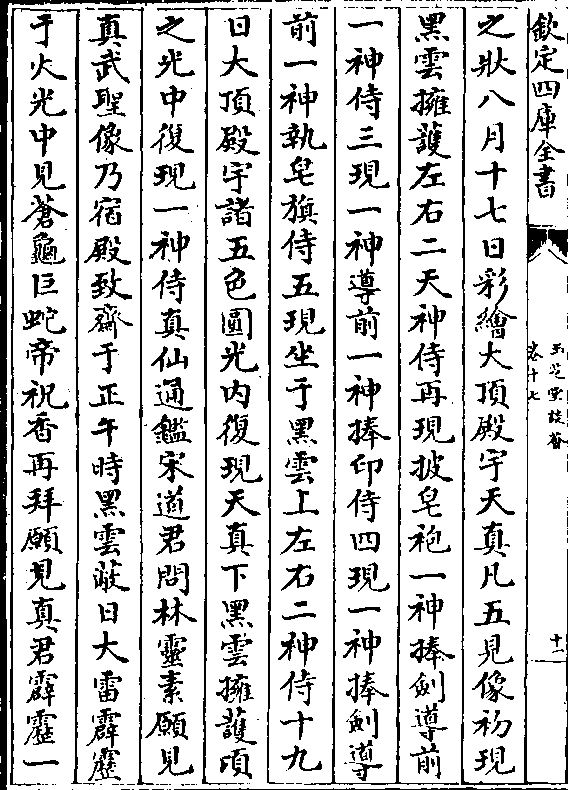 欽定四庫全書
玉芝堂談薈
卷十七
十一
之狀八月十七日彩繪大頂殿宇天真凡五見像初現
黑雲擁護左右二天神侍再現披皂袍一神捧劍導前
一神侍三現一神導前一神捧印侍四現一神捧劍導
前一神執皂旗侍五現坐于黑雲上左右二神侍十九
日大頂殿宇諸五色圓光内復現天真下黑雲擁護頃
之光中復現一神侍真仙通鑑宋道君問林靈素願見
真武聖像乃宿殿致齋于正午時黑雲蔽日大雷霹靂
于火光中見蒼龜巨蛇帝祝香再拜願見真君霹靂一